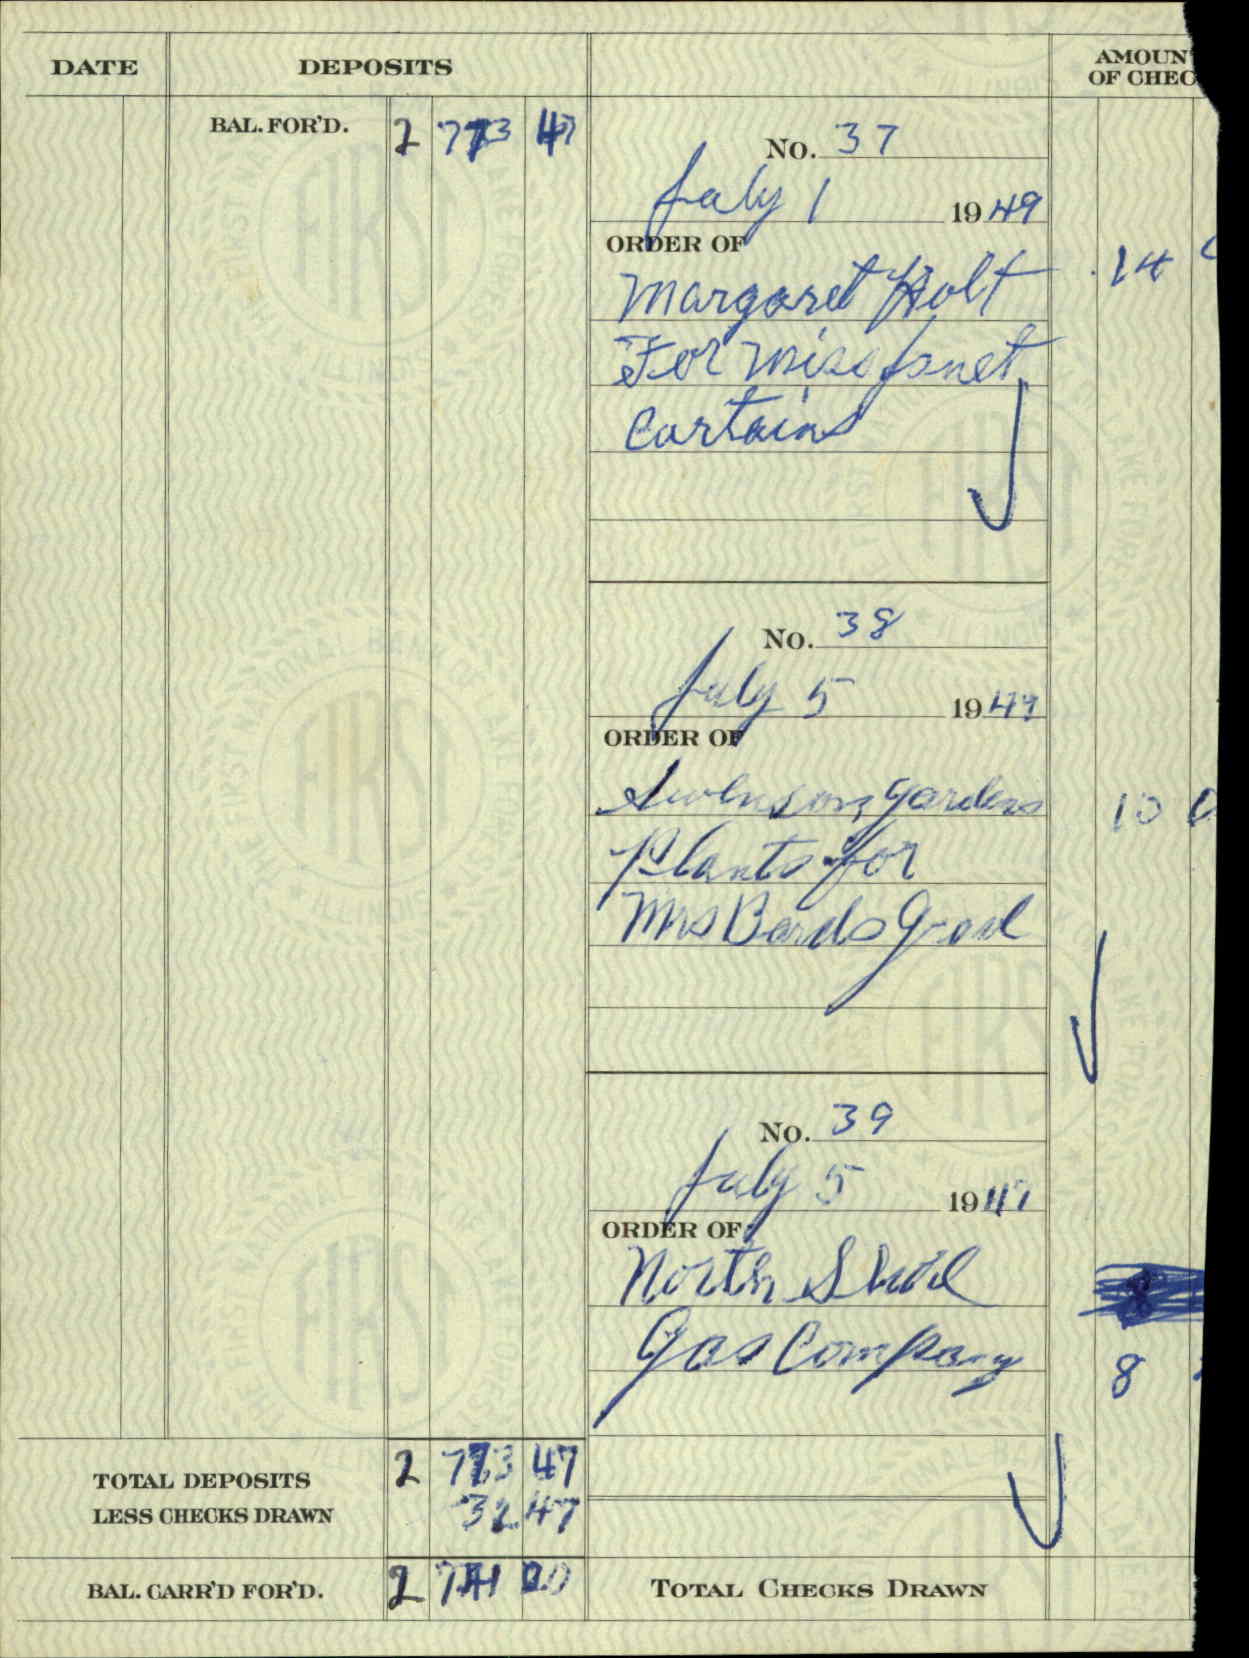 DATE DEPOSITS AMOUN
OF CHEC
BAL. FOR'D. 2 773 47
No. 37
July 1 1949
ORDER OF
Margaret Holt 14
For Miss Janet
Curtains
No. 38
July 5 1949
ORDER OF
Swensons Gardens 10 0
Plants for
Mrs Bards
No. 39
July 5 1949
ORDER OF
North Shore
8
Gas Company 8
TOTAL DEPOSITS 2 773 47
LESS CHECKS DRAWN 32 47
BAL. CARR'D FOR'D. 2 741 00 TOTAL CHECKS DRAWN